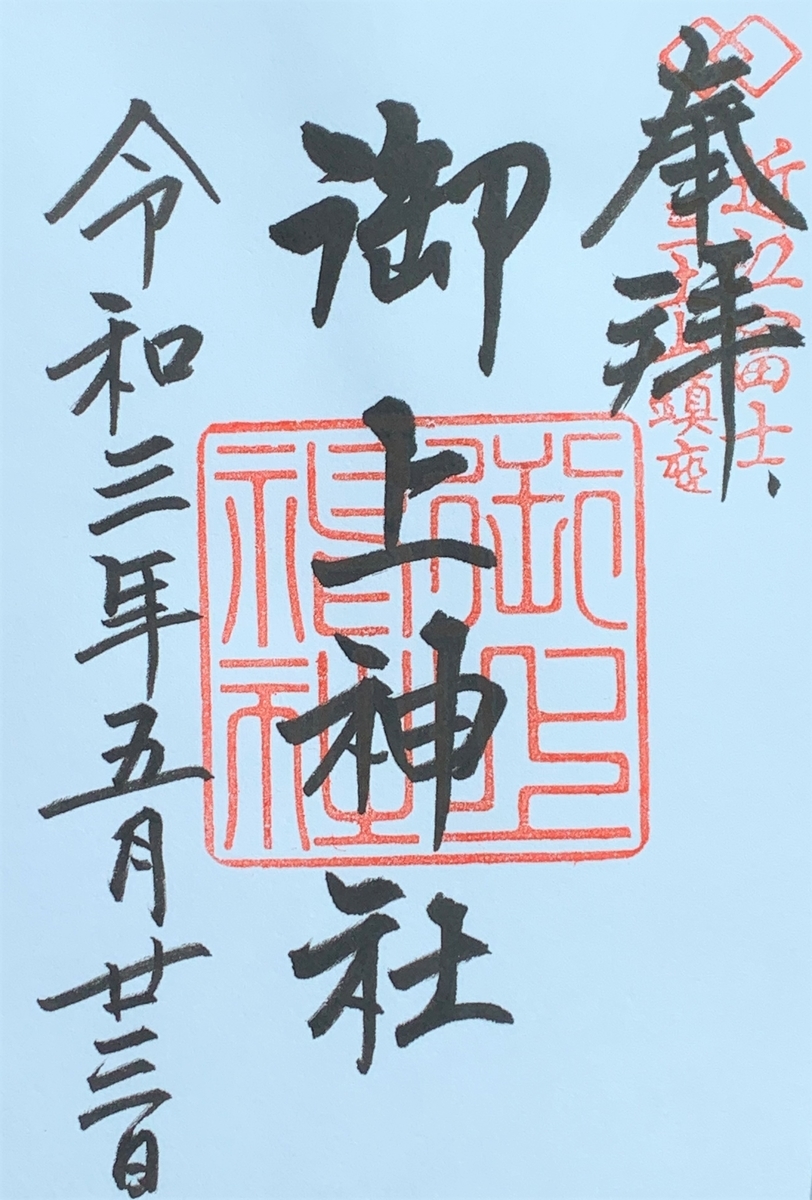 奉拝
近江富士
三上山頭座
御上神社
御上神社
令和三年五月廿三日